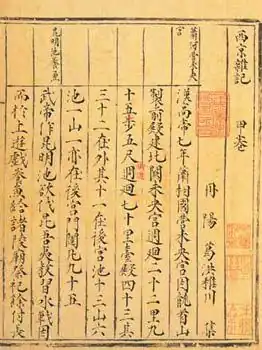 西京雜記 甲卷
丹陽 葛洪稚川 集
蕭何營未央宮
漢高帝七年蕭相國營未央宮因龍首山
製前殿建北闕未央宮週迴二十二里九
十五步五尺街道週迴七十里臺殿四十三其
三十二在外其十一在後宮池十三山六
池一山一亦在後宮門闥凡九十五
昆明池養魚
武帝作昆明池欲伐昆吾夷教習水戰因
而於上遊戲養魚魚給諸陵廟祭祀餘付長